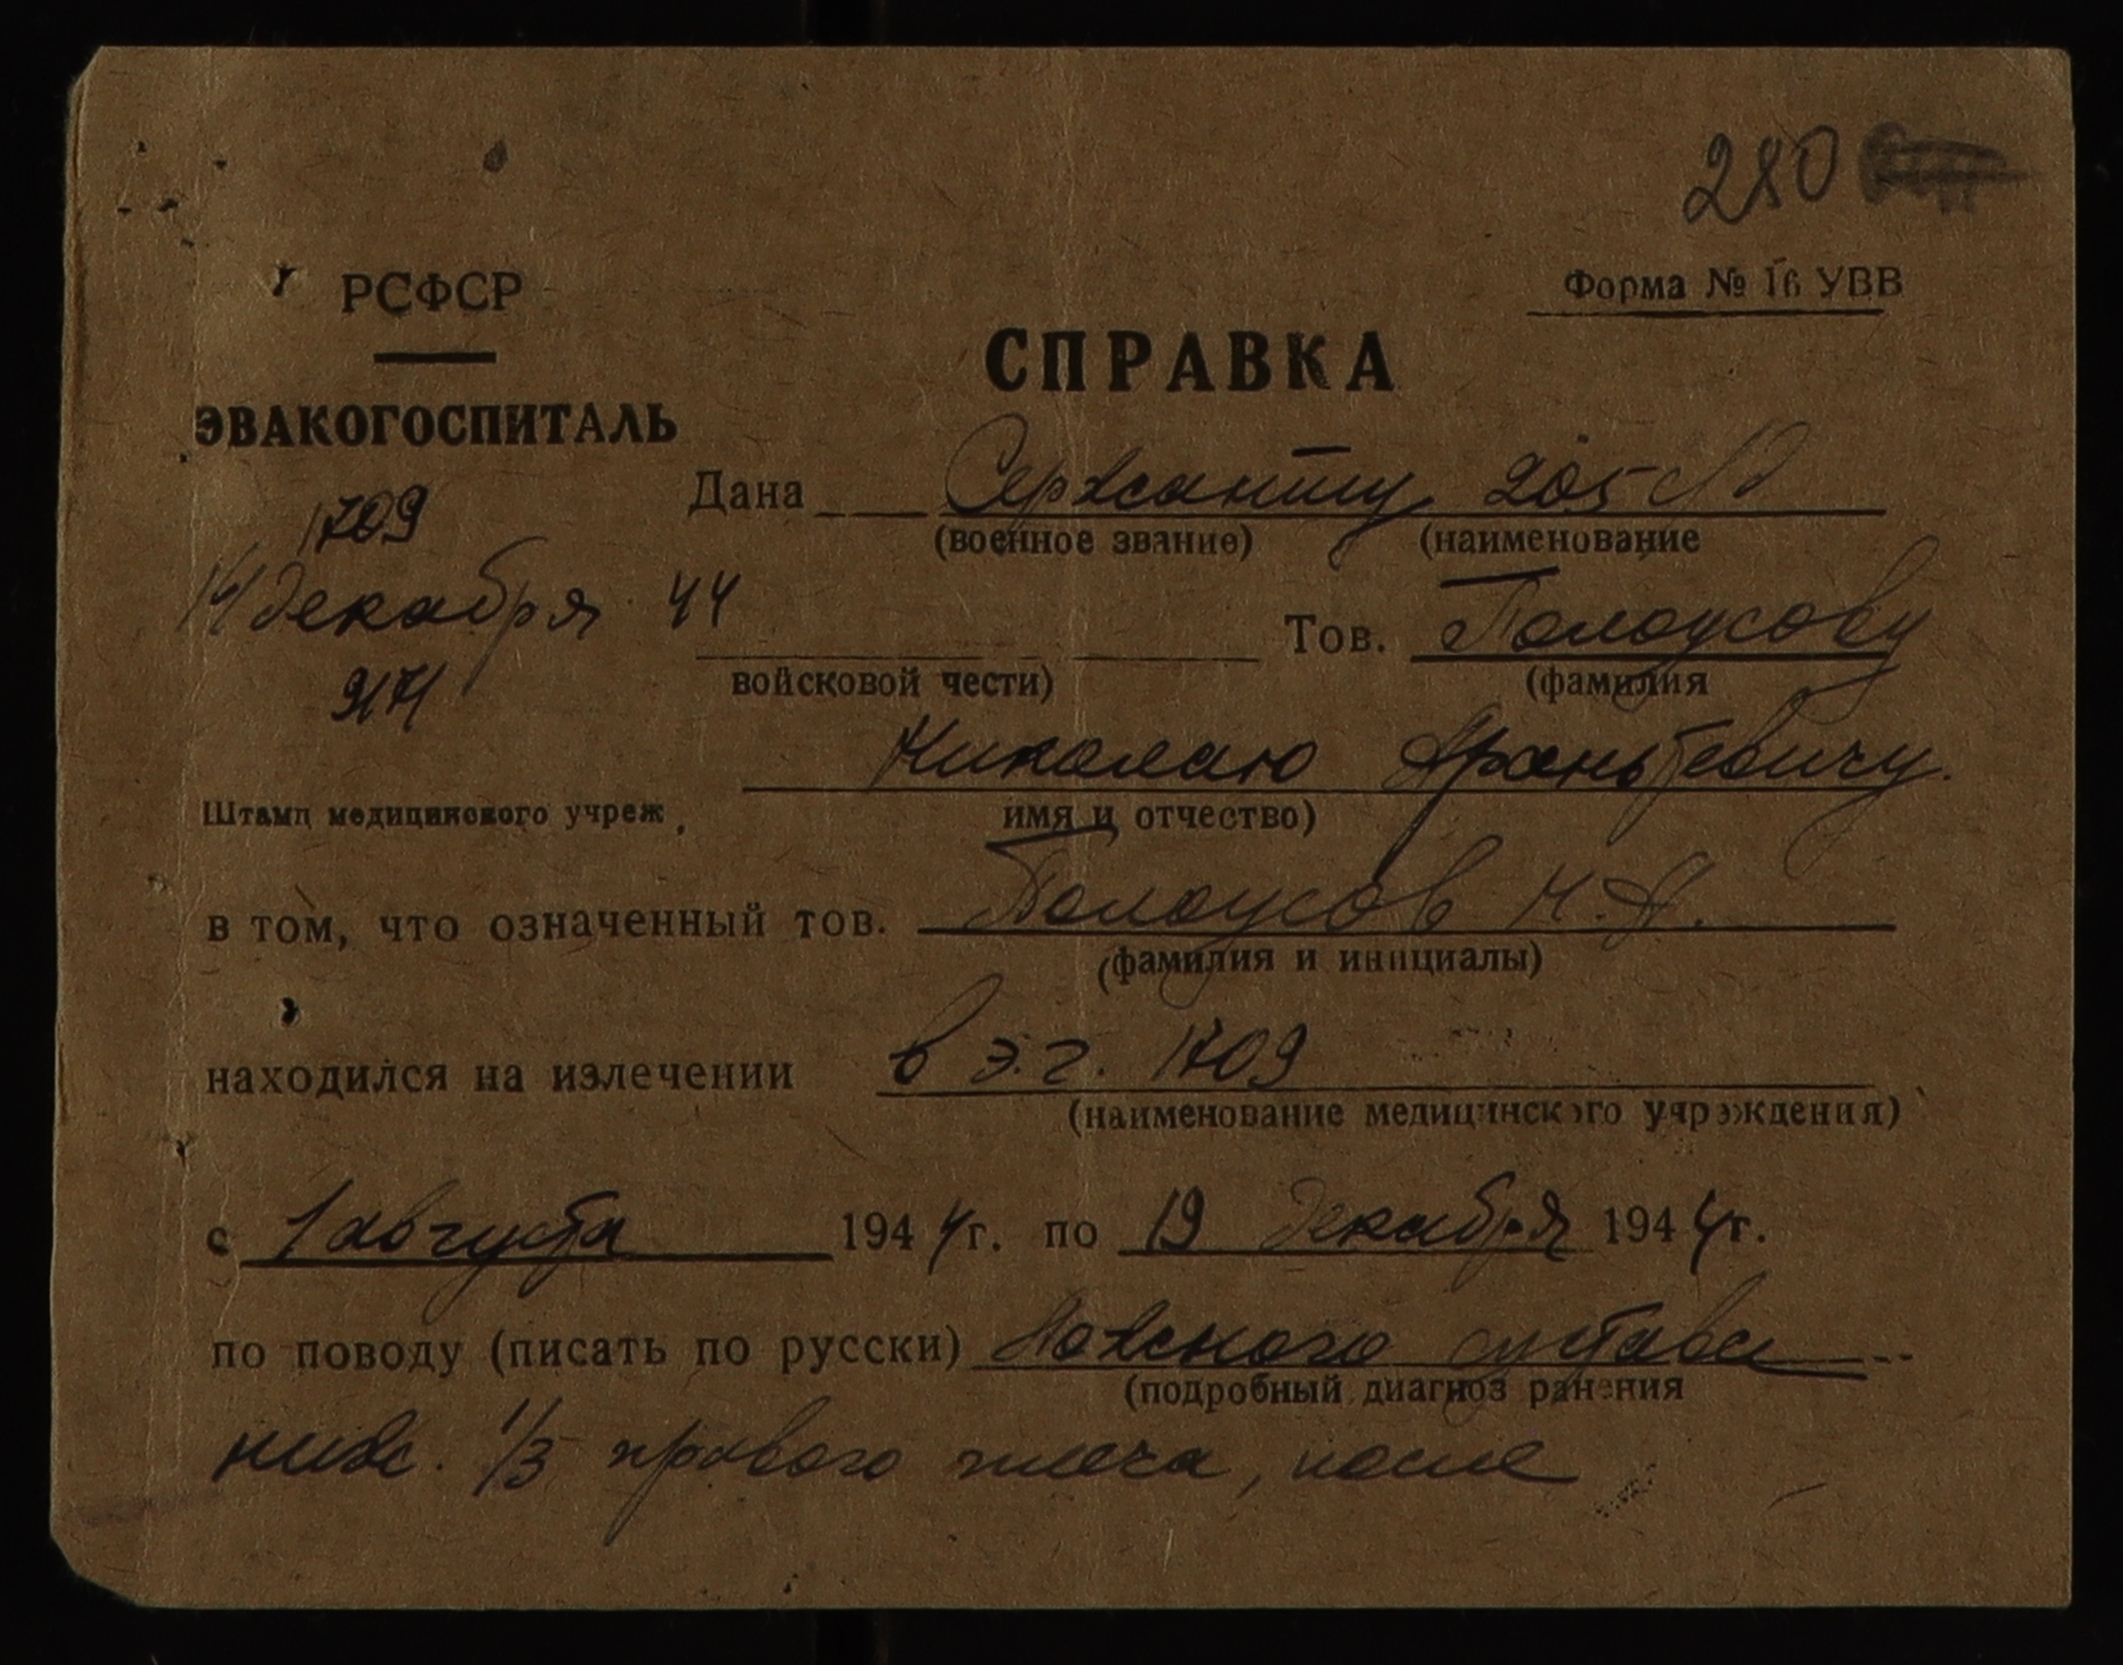 280
Форма № 16 УВВ
РСФСР
ЭВАКОГОСПИТАЛЬ
1709
14 декабря 44
9171
Штамп медицинского учреж.
СПРАВКА
Дана Сержанту 205 СД
(военное звание) (наименование
Тов. Белоусову
войсковой чести) (фамилия
Николаю
имя и отчество)
в том, что означенный тов. Белоусов Н.А.
(фамилия и инициалы)
находился на излечении в э.г. 1709
(наименование медицинского учреждения)
с 1 августа 1944г. по 19 декабря 1944г.
по поводу (писать по русски) Ложного сустава
(подробный диагноз ранения
ниж. 1/3 правого плеча, после